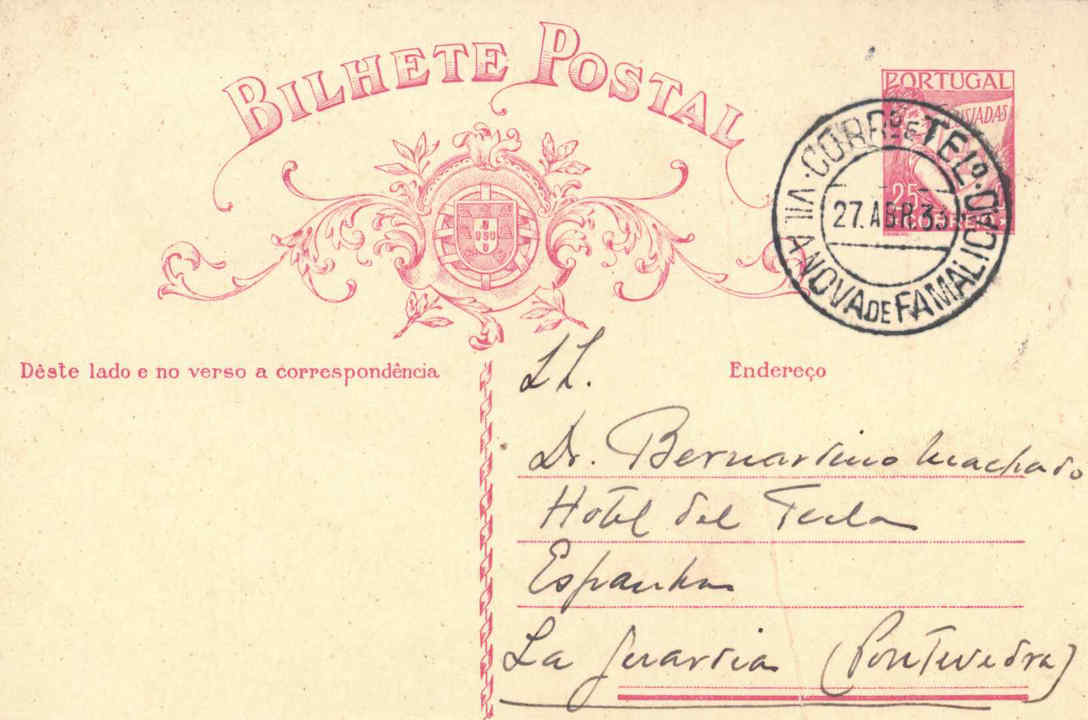 BILHETE POSTAL
PORTUGAL
LUSIADAS
25
CORRº E TELº. DE
27.ABR.33
VILA NOVA DE FAMALICÃO
Dêste lado e no verso a correspondência
Endereço
Dr. Bernardino Machado
Hotel del Tecla
Espanha
La Guardia (Pontevedra)